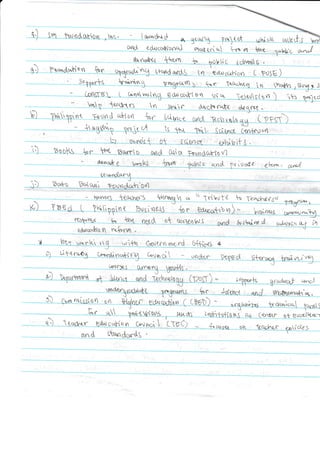 f.) Foundation, Inc. - launched a yearly project which solicits
and educational material from the public and
donate them to public schools.
g.) Foundation for Upgrading Standards in Education (FUSE)
- supports training programs for teachers in Math, Eng &
- CONSTEL (Continuing Education via Television) its
- help teachers in their doctorate degree.
h) Philippine Foundation for Science and Technology (PFST)
- flagship project is the Phil Science Centrum
consist of science exhibits.
i) Books for the Barrio and Asia Foundation
- donate books from public and private elem. and
secondary
j) Bato Balani Foundation
- teachers through a "Tribute to Teachers" program.
k) PBEd (Philippine Business for Education) - business community
response to the need of and sustained in
education reform.
* Networking with Government Offices *
Literacy Coordinating Council - under DepEd literacy training
among youths.
Department of Science and Technology (DOST) - supports graduate and
undergraduate programs for science and Mathematics.
Commission on Higher Education (CHED) - organizes technical panels
for all professions, institutions as center of excellence
Teacher Education Council (TEC) - focuses on teacher policies
and standards.